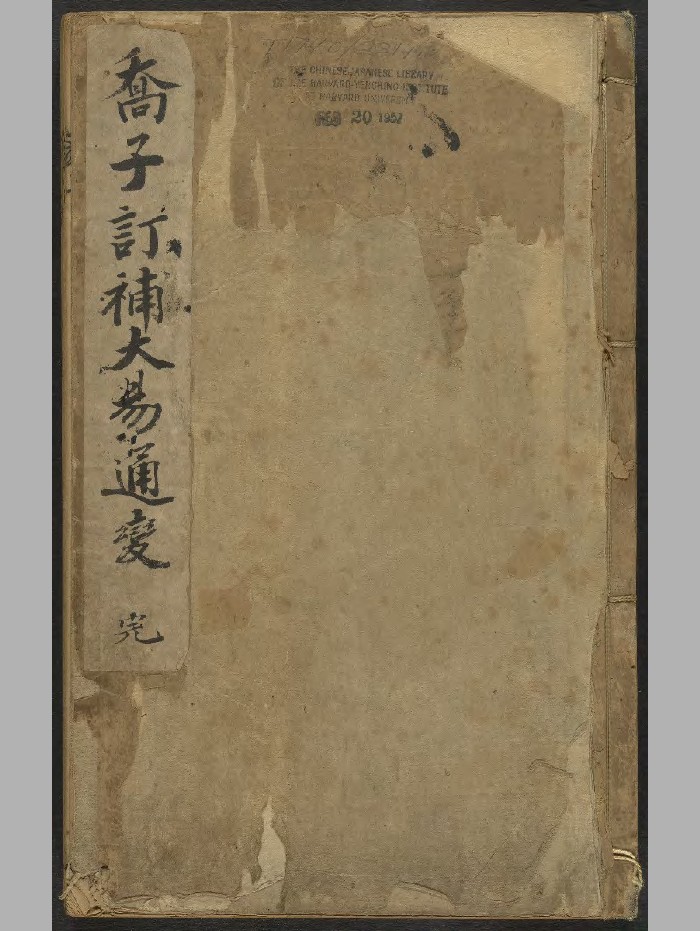 喬子訂補大易通變 完
THE CHINESE-JAPANESE LIBRARY
OF THE HARVARD-YENCHING INSTITUTE
AT HARVARD UNIVERSITY
FEB 20 1957